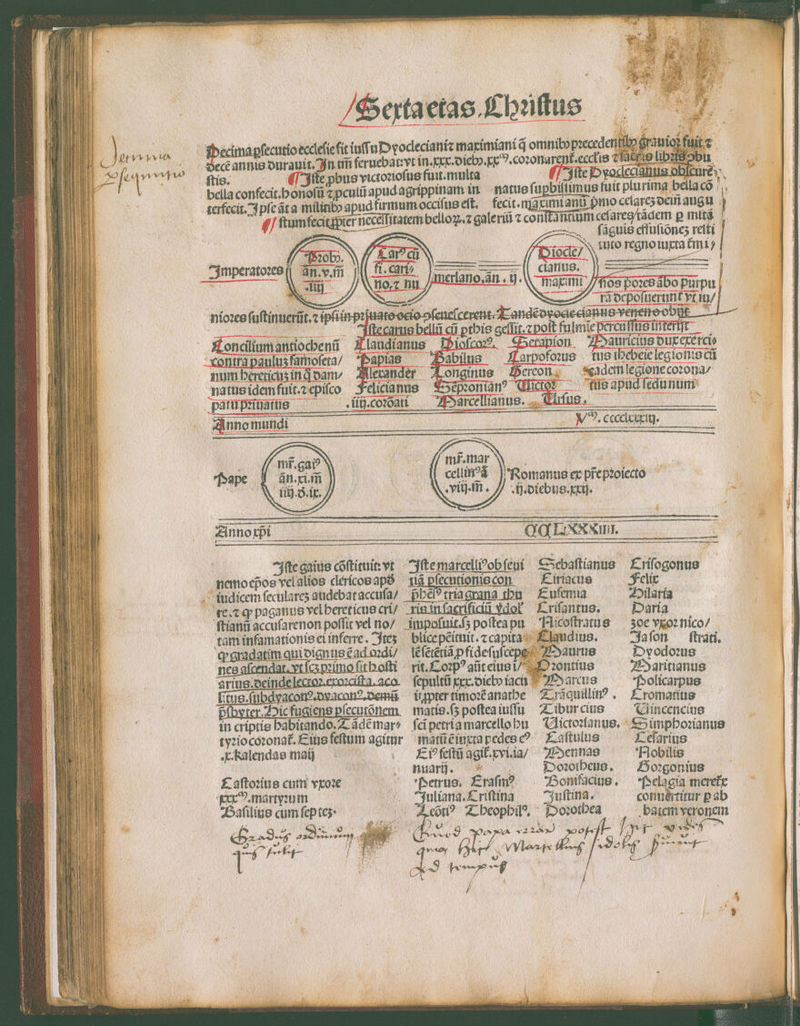 Sexta etas. Christus
Decima ꝑsecutio ecclesie fit iussu Dyocleciani ⁊ maximiani q̄ omnibꝰ precedentibꝰ grauior fuit ⁊
decē annis durauit. In tm̄ feruebat: vt in .xxx. diebꝰ .xxᵐ. coronarent̃. eccl'is ⁊ sacris libris ꝯbu
stis.
Decima
ꝑsequutio
¶ Iste ꝓbus victoriosus fuit. multa
bella confecit. honosū ⁊ ꝓculū apud agrippinam in
terfecit. Ipse āt a militibꝰ apud firmum occisus est.
¶ Iste Dyoclecianus obscure
natus su
fuit plurima bella cō
fecit. maximianū pͥmo celarez dein̄ augu
stum fecit ꝓpter necessitatem belloꝝ. ⁊ galeriū ⁊ constantium cesares tādem ꝑ multā
sāguis effusionez relicto regno iuxta
Imperatores
Probꝰ.
ān. v. m̄
.iiij
Carꝰ cū
fi. cari⸗
no, ⁊ nu
meriano. ān. ij.
Diocle/
cianus.
maximi
nos pores ābo purpu
rā deposuerunt vt iu/
niores sustinuerūt. ⁊ ipsi in priuato ocio ꝯsenescerent. Tandē dyoclecianus veneno obijt
Iste carus bellū cū ꝑthis gessit. ⁊ post fulmine percussus interijt
Concilium antiochenū
contra pauluz samoseta/
num hereticuz in q̄ dam/
natus idem fuit. ⁊ episco
patu priuatus
Claudianus
Papias
Alexander
Felicianus
.iiij. corōati
Dioscorꝰ.
Babilus
Longinus
Sepronianꝰ
Marcellianus.
Serapion
Carpoforus
Hercon
Victor
Ursus.
Mauricius dux exerci⸗
tus thebeie legionis cū
eadem legione corona/
tus apud sedunum
Anno mundi
Vᵐ. cccclxxxiij.
Pape
mr̄. gaiꝰ
ān. xi. m̄
iiij. d̄. ix.
mr̄. mar
cellinꝰ ā
.viij. m̄.
Romanus ex pr̄e proiecto
.ij. diebus. xxij.
Anno xp̄i
CCLXXXIIII.
Iste gaius cōstituit: vt
nemo ep̄os vel alios clericos apđ
iudicem seculares audebat accusa/
re. ⁊ ꝙ paganus vel hereticus cri/
stianū accusare non possit vel no/
tam infamationis ei inferre. Itez
ꝙ gradatim qui dignus ē ad ordi/
nes ascendat. vt scz primo sit hosti
arius. deinde lector. exorcista. aco
litus. subdyaconꝰ. dyaconꝰ. demū
p̄sbyter. Hic fugiens ꝑsecutōnem
in criptis habitando. Tādē mar⸗
tyrio coronat̃. Eius festum agitur
.x. kalendas maij
Castorius cum vxore
xxxᵐ. martyrum
Basilius cum sep tez.
Iste marcelliꝰ ob seui
tiā ꝑsecutionis con
p̄hēsꝰ tria grana thu
ris in sacrificiū ydol'
imposuit. sz postea pu
blice pēituit. ⁊ capita
lē sētētiā ꝓ fide suscepe
rit. Corpꝰ aūt eius i/
sepultū xxx. diebꝰ iacu
it, ꝓpter timorē anathe
matis. sz postea iussu
sc̄i petri a marcello hu
matū ē iuxta pedes eꝰ
Eiꝰ festū agit̃. xvi. ia/
nuarij.
Petrus. Erasmꝰ
Juliana. Cristina
Leōtiꝰ Theophilꝰ.
Sebastianus
Ciriacus
Eufemia
Crisantus.
Nicostratus
Claudius.
Maurus
Orontius
Marcus
Trāquillinꝰ.
Tiburcius
Victorianus.
Castulus
Mennas
Dorotheus.
Bonifacius.
Justina.
Dorothea
Crisogonus
Felix
Hilaria
Daria
zoe vxor nico/
Jason strati.
Dyodorus
Maritianus
Policarpus
Cromatius
Vincencius
Simphorianus
Cesarius
Nobilis
Gorgonius
Pelagia meretx̄
conuertitur ꝑ ab
batem veronem
Gradus ordinum
quis tulit
Quod papa errar potest hic vides
quia hic Marcellinus idolis
ad tempus